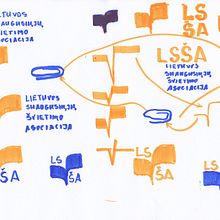 LIETUVOS
SUAUGUSIŲJŲ
ŠVIETIMO
ASOCIACIJA
LS
ŠA
LSŠA
LIETUVOS
SUAUGUSIŲJŲ
ŠVIETIMO
ASOCIACIJA
LIETUVOS
SUAUGUSIŲJŲ
ŠVIETIMO
ASOCIACIJA
LS
ŠA
LS
ŠA
LS
ŠA